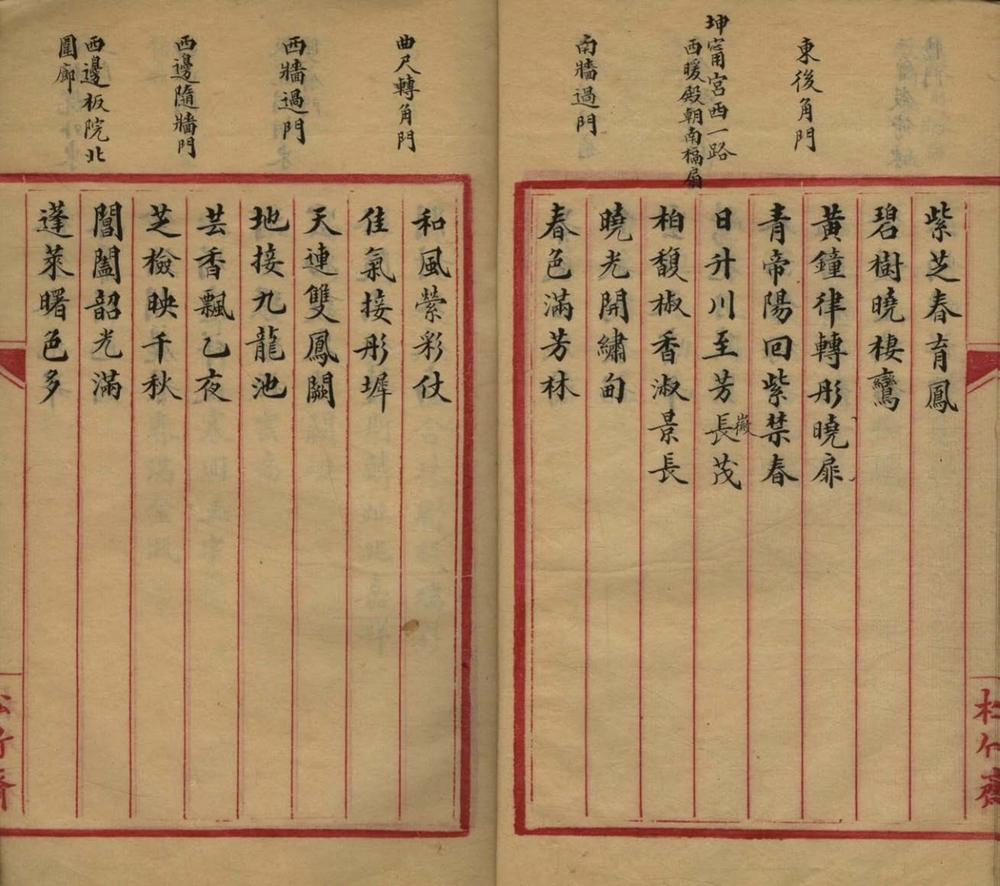 紫芝春育鳳
碧樹曉棲鸞
東後角門
黃鐘律轉彤曉扉
青帝陽回紫禁春
坤甯宮西一路
西暖殿朝南槅扇
日升川至芳長茂
徽
柏馥椒香淑景長
曉光開繡甸
南牆過門
春色滿芳林
曲尺轉角門
和風縈彩仗
佳氣接彤墀
西牆過門
天連雙鳳闕
地接九龍池
西邊隨牆門
芸香飄乙夜
芝檢映千秋
西邊板院北
圍廊
閶闔韶光滿
蓬萊曙色多
松竹齋
松竹齋